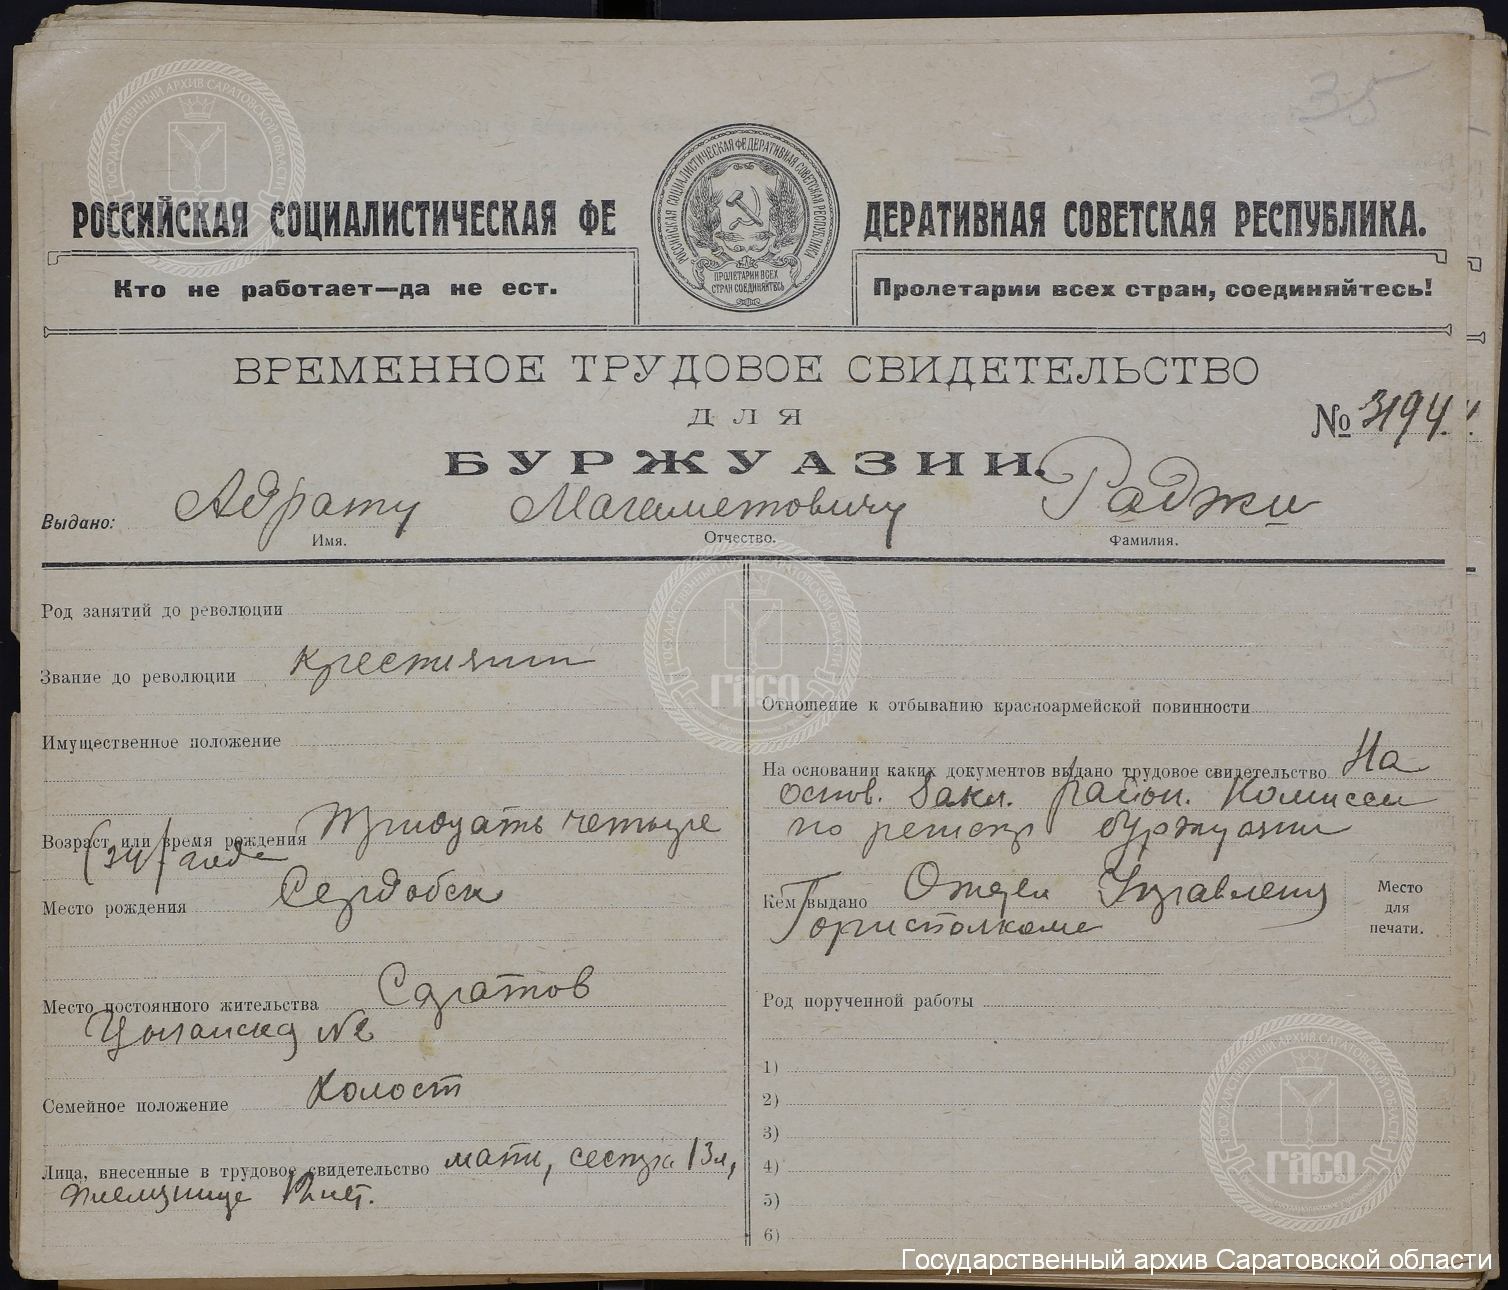 35
РОССИЙСКАЯ СОЦИАЛИСТИЧЕСКАЯ ФЕ ДЕРАТИВНАЯ СОВЕТСКАЯ РЕСПУБЛИКА.
РОССИЙСКАЯ СОЦИАЛИСТИЧЕСКАЯ ФЕДЕРАТИВНАЯ СОВЕТСКАЯ РЕСПУБЛИКА
ПРОЛЕТАРИИ ВСЕХ
СТРАН СОЕДИНЯЙТЕСЬ
Кто не работает—да не ест.
Пролетарии всех стран, соединяйтесь!
ВРЕМЕННОЕ ТРУДОВОЕ СВИДЕТЕЛЬСТВО
ДЛЯ
№ 3194.
БУРЖУАЗИИ.
Выдано: Магаметовичу Раджи
Имя. Отчество. Фамилия.
Род занятий до революции
Звание до революции крестьянин
Имущественное положение
Возраст или время рождения Тридцать четыре
(34) года
Место рождения Сердобск
Место постоянного жительства Саратов
Цыганская №
Семейное положение Холост
Лица, внесенные в трудовое свидетельство мать, сестра 13 л,
племянница
Отношение к отбыванию красноармейской повинности
На основании каких документов выдано трудовое свидетельство На
основ. Закл. район. Комиссии
по регистр буржуазии
Кем выдано Отдел Управления
Горисполкома
Место
для
печати.
Род порученной работы
1)
2)
3)
4)
5)
6)
ГОСУДАРСТВЕННЫЙ АРХИВ САРАТОВСКОЙ ОБЛАСТИ
ГАСО
ГОСУДАРСТВЕННЫЙ АРХИВ САРАТОВСКОЙ ОБЛАСТИ
ГАСО
Государственный архив Саратовской области